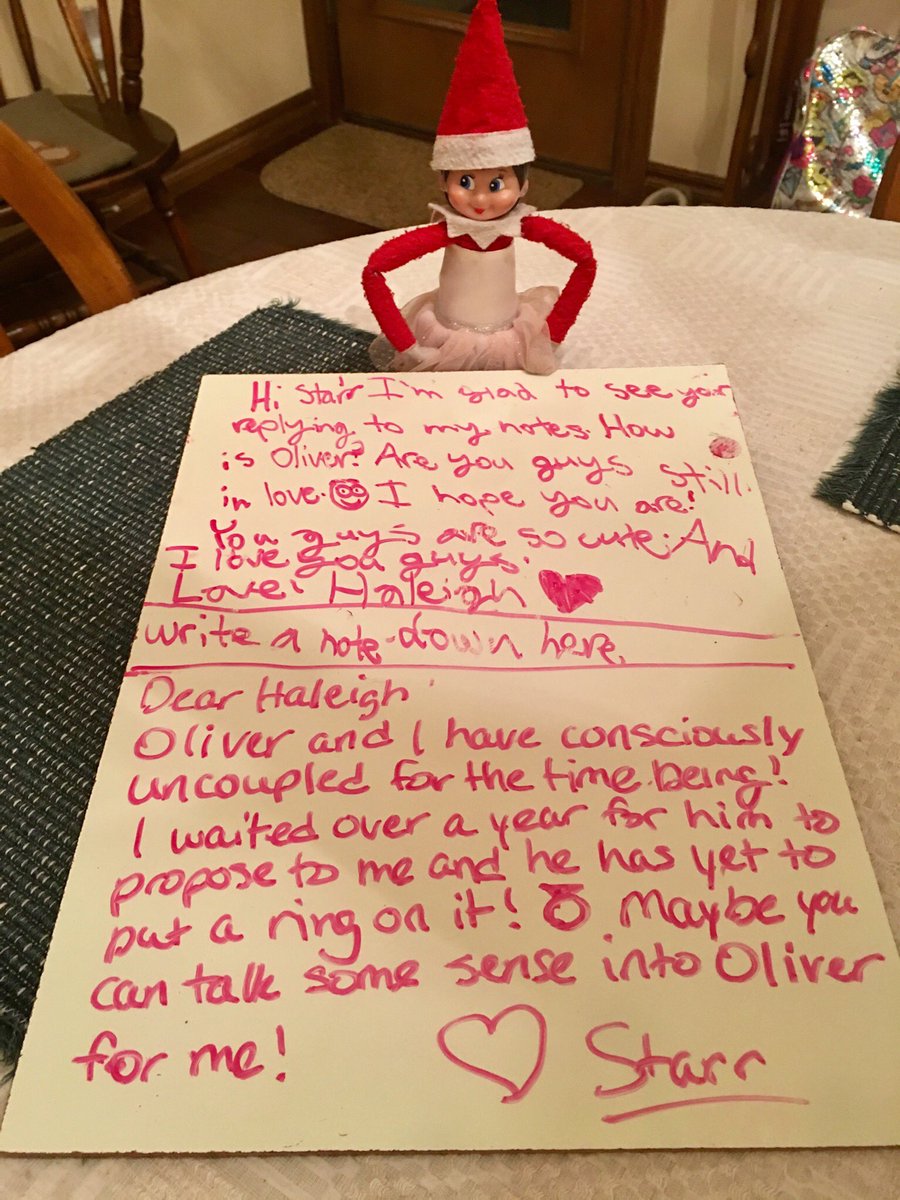 Hi Starr I'm glad to see your
replying to my notes. How
is Oliver? Are you guys still
in love. I hope you are!
You guys are so cute. And
I love you guys.
Love: Haleigh
write a note down here.
Dear Haleigh
Oliver and I have consciously
uncoupled for the time being!
I waited over a year for him to
propose to me and he has yet to
put a ring on it! Maybe you
can talk some sense into Oliver
for me!
Starr